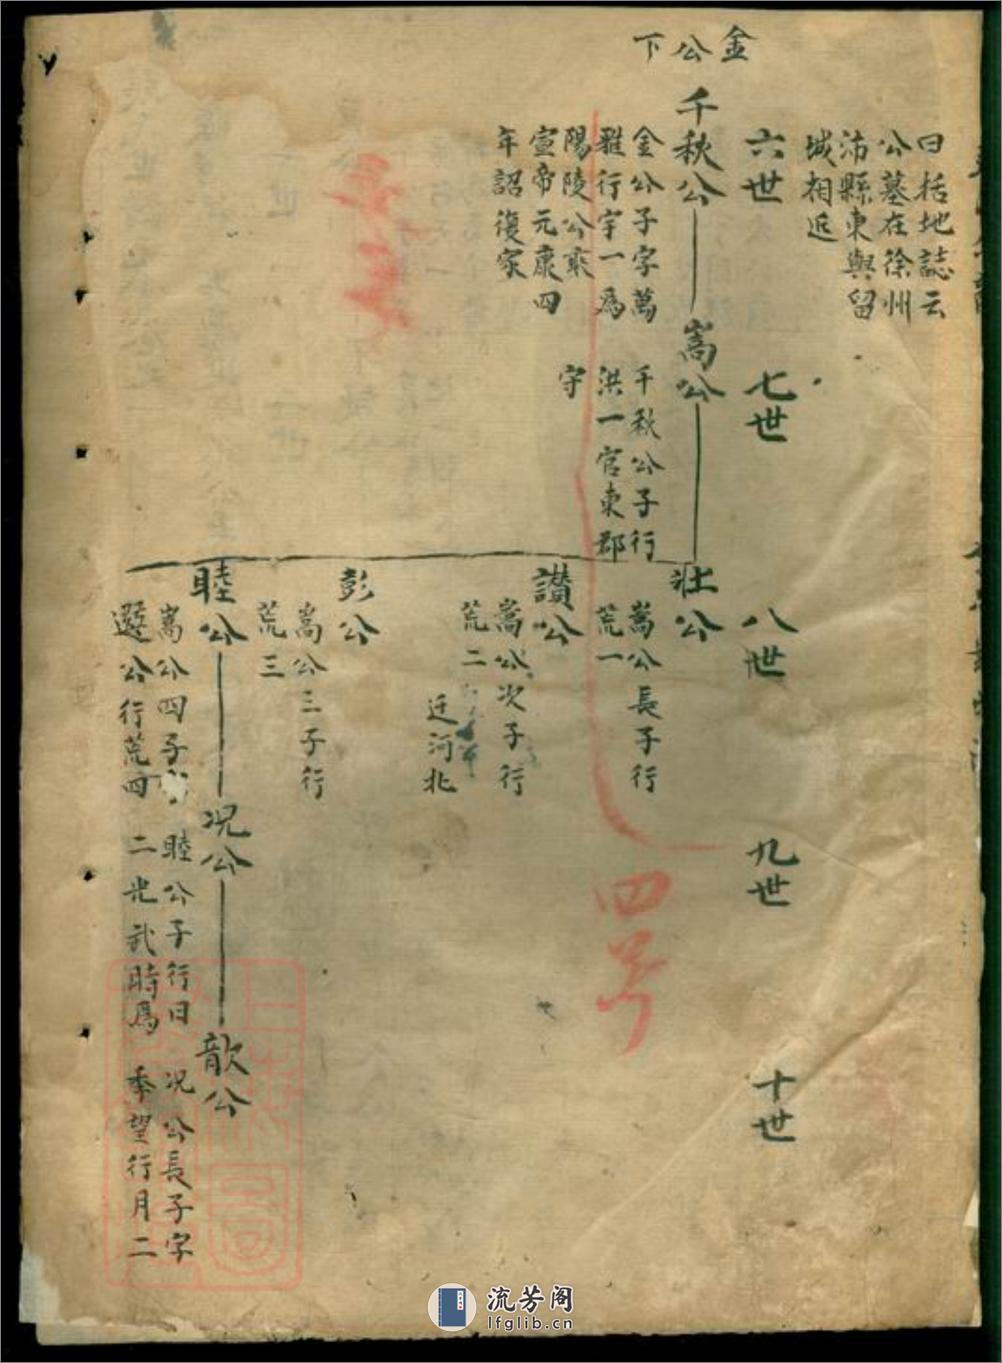 金公下
曰括地誌云
公墓在徐州
沛縣東與留
城相近
六世
七世
八世
九世
十世
千秋公
金公子字萬
雅行宇一爲
陽陵公乘
宣帝元康四
年詔復家
嵩公
千秋公子行
洪一官東郡
守
壯公
嵩公長子行
荒一
讃公
嵩公次子行
荒二
迁河北
彭公
嵩公三子行
荒三
睦公
嵩公四子
公行荒四
况公
睦公子行日
二光武時爲
歆公
况公長子字
季望行月二
四号
流芳阁
lfglib.cn